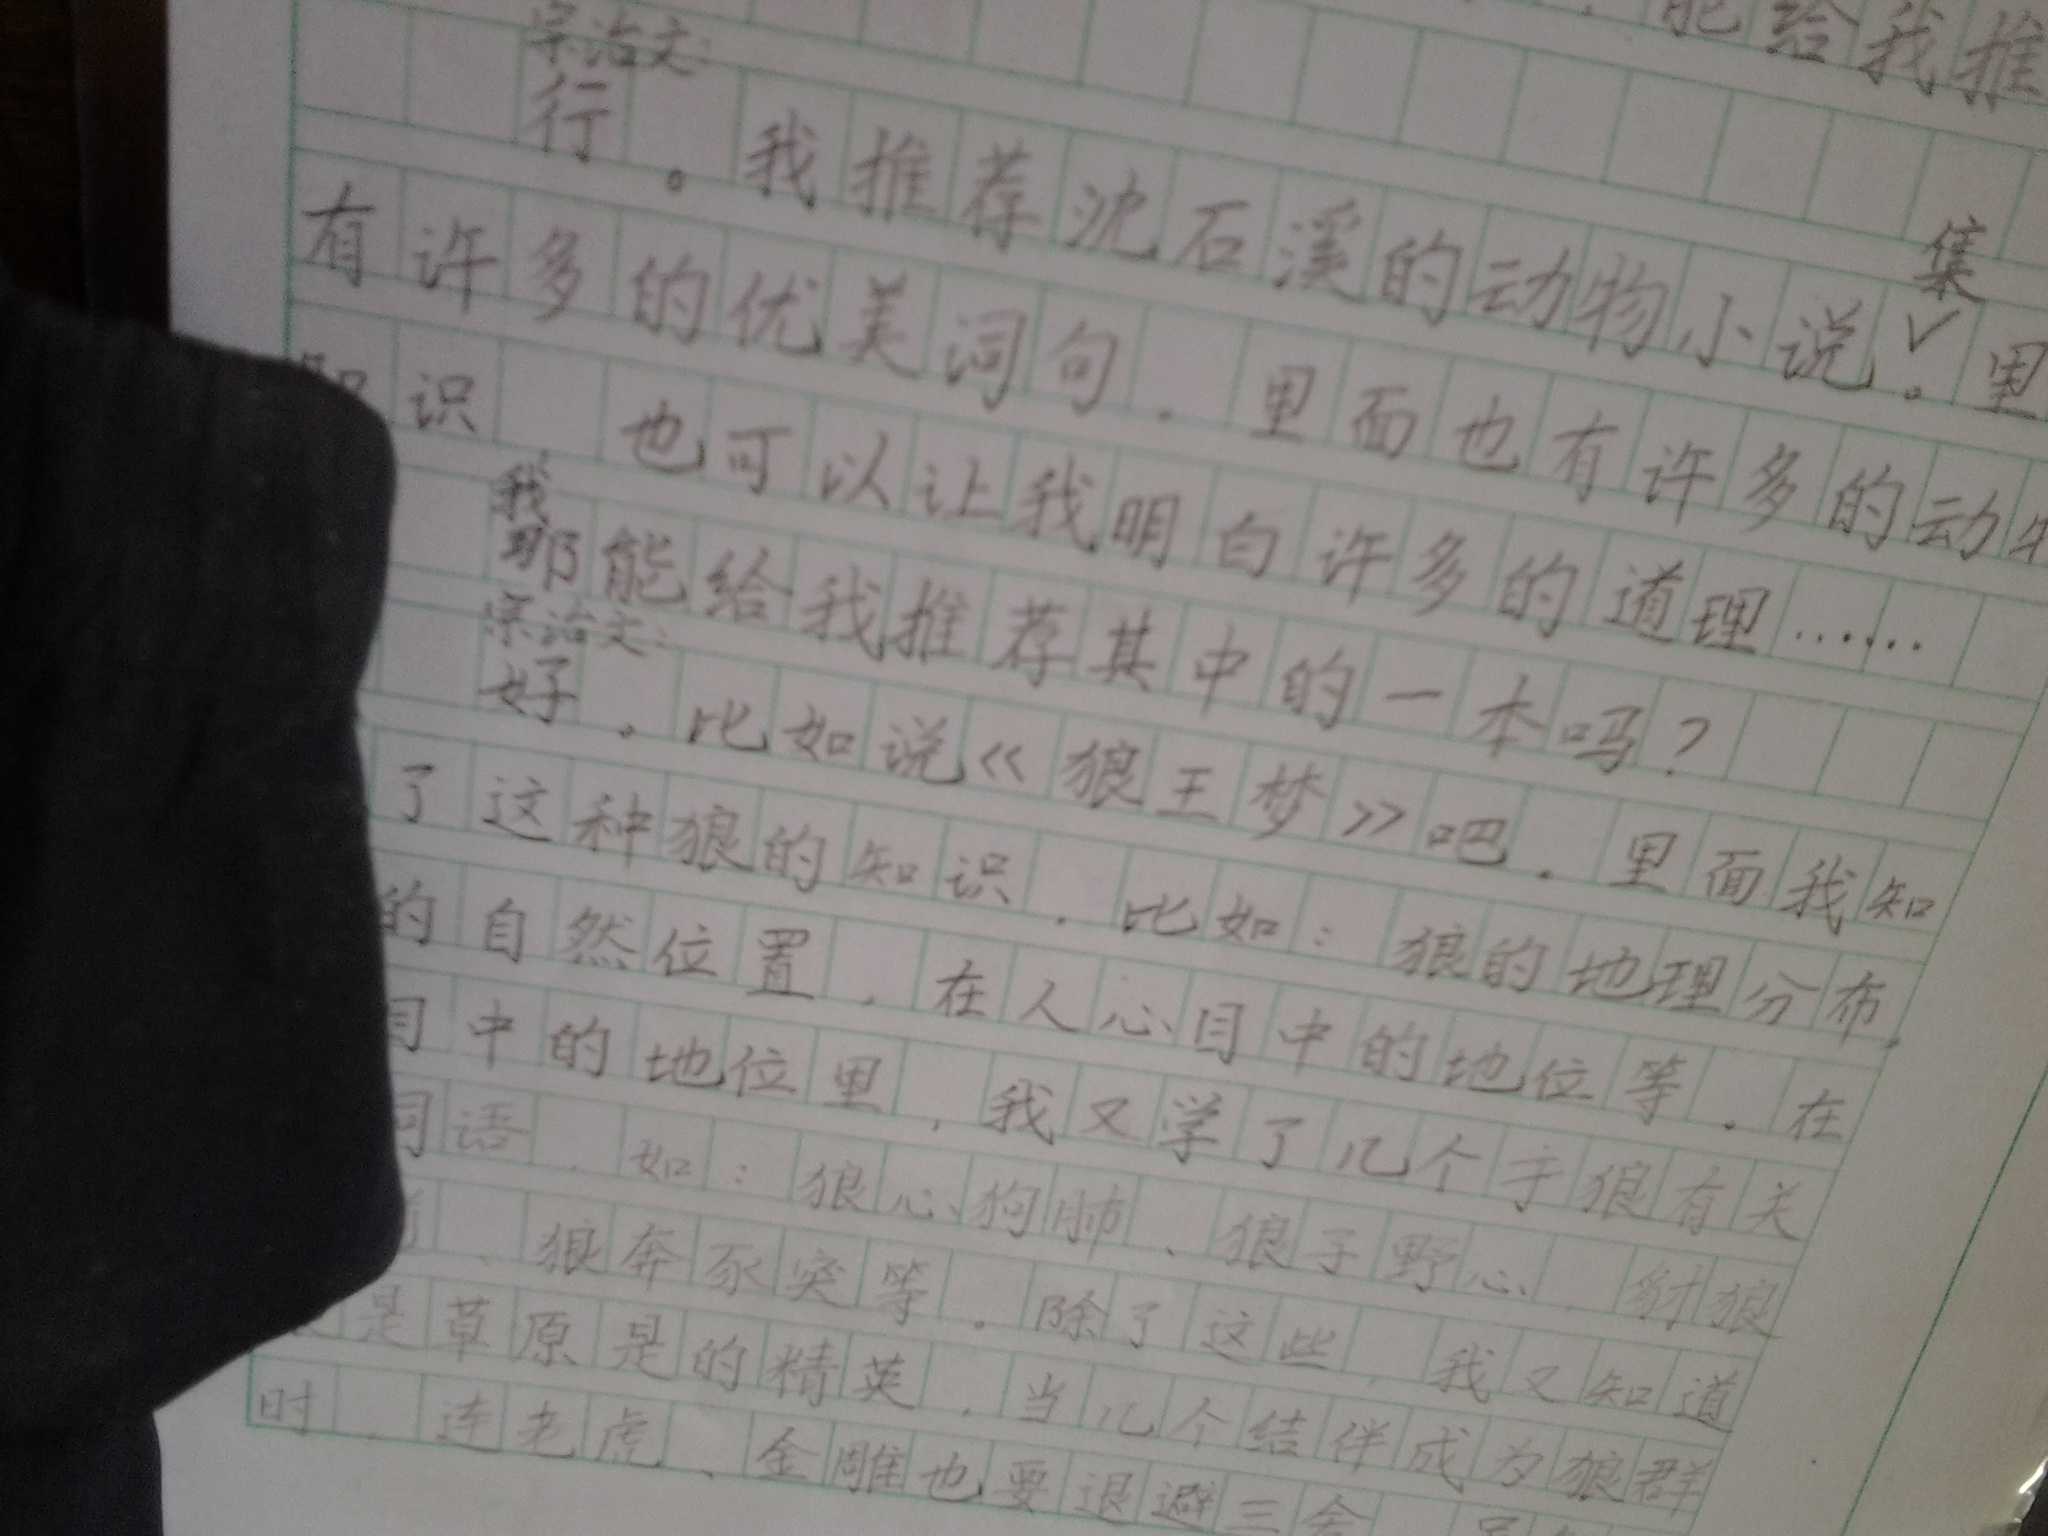 能给我推
宗治文：
行。我推荐沈石溪的动物小说集。里
有许多的优美词句，里面也有许多的动
识，也可以让我明白许多的道理……
我
那能给我推荐其中的一本吗？
宗治文：
好，比如说《狼王梦》吧。里面我知
了这种狼的知识，比如：狼的地理分布，
的自然位置，在人心目中的地位等。在
目中的地位里，我又学了几个于狼有关
词语，如：狼心狗肺、狼子野心、豺狼
、狼奔豕突等。除了这些，我又知道
是草原是的精英，当几个结伴成为狼群
时，连老虎、金雕也要退避三舍